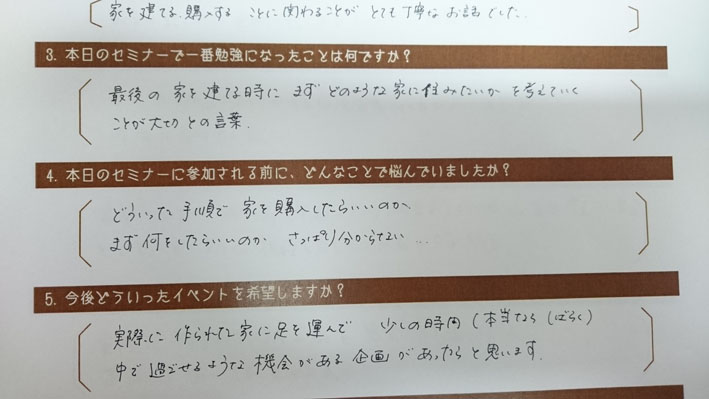 家を建てる、購入する ことに関わることが とても丁寧な お話でした.
3. 本日のセミナーで一番勉強になったことは何ですか？
最後の 家を建てる時に まず どのような家に住みたいか を考えていく
ことが大切との言葉.
4. 本日のセミナーに参加される前に、どんなことで悩んでいましたか？
どういった手順で 家を購入したらいいのか、
まず何をしたらいいのか さっぱり分からない...
5. 今後どういったイベントを希望しますか？
実際に 作られた家に足を運んで 少しの時間 (本当なら しばらく)
中で過ごせるような機会がある企画があったらと思います.